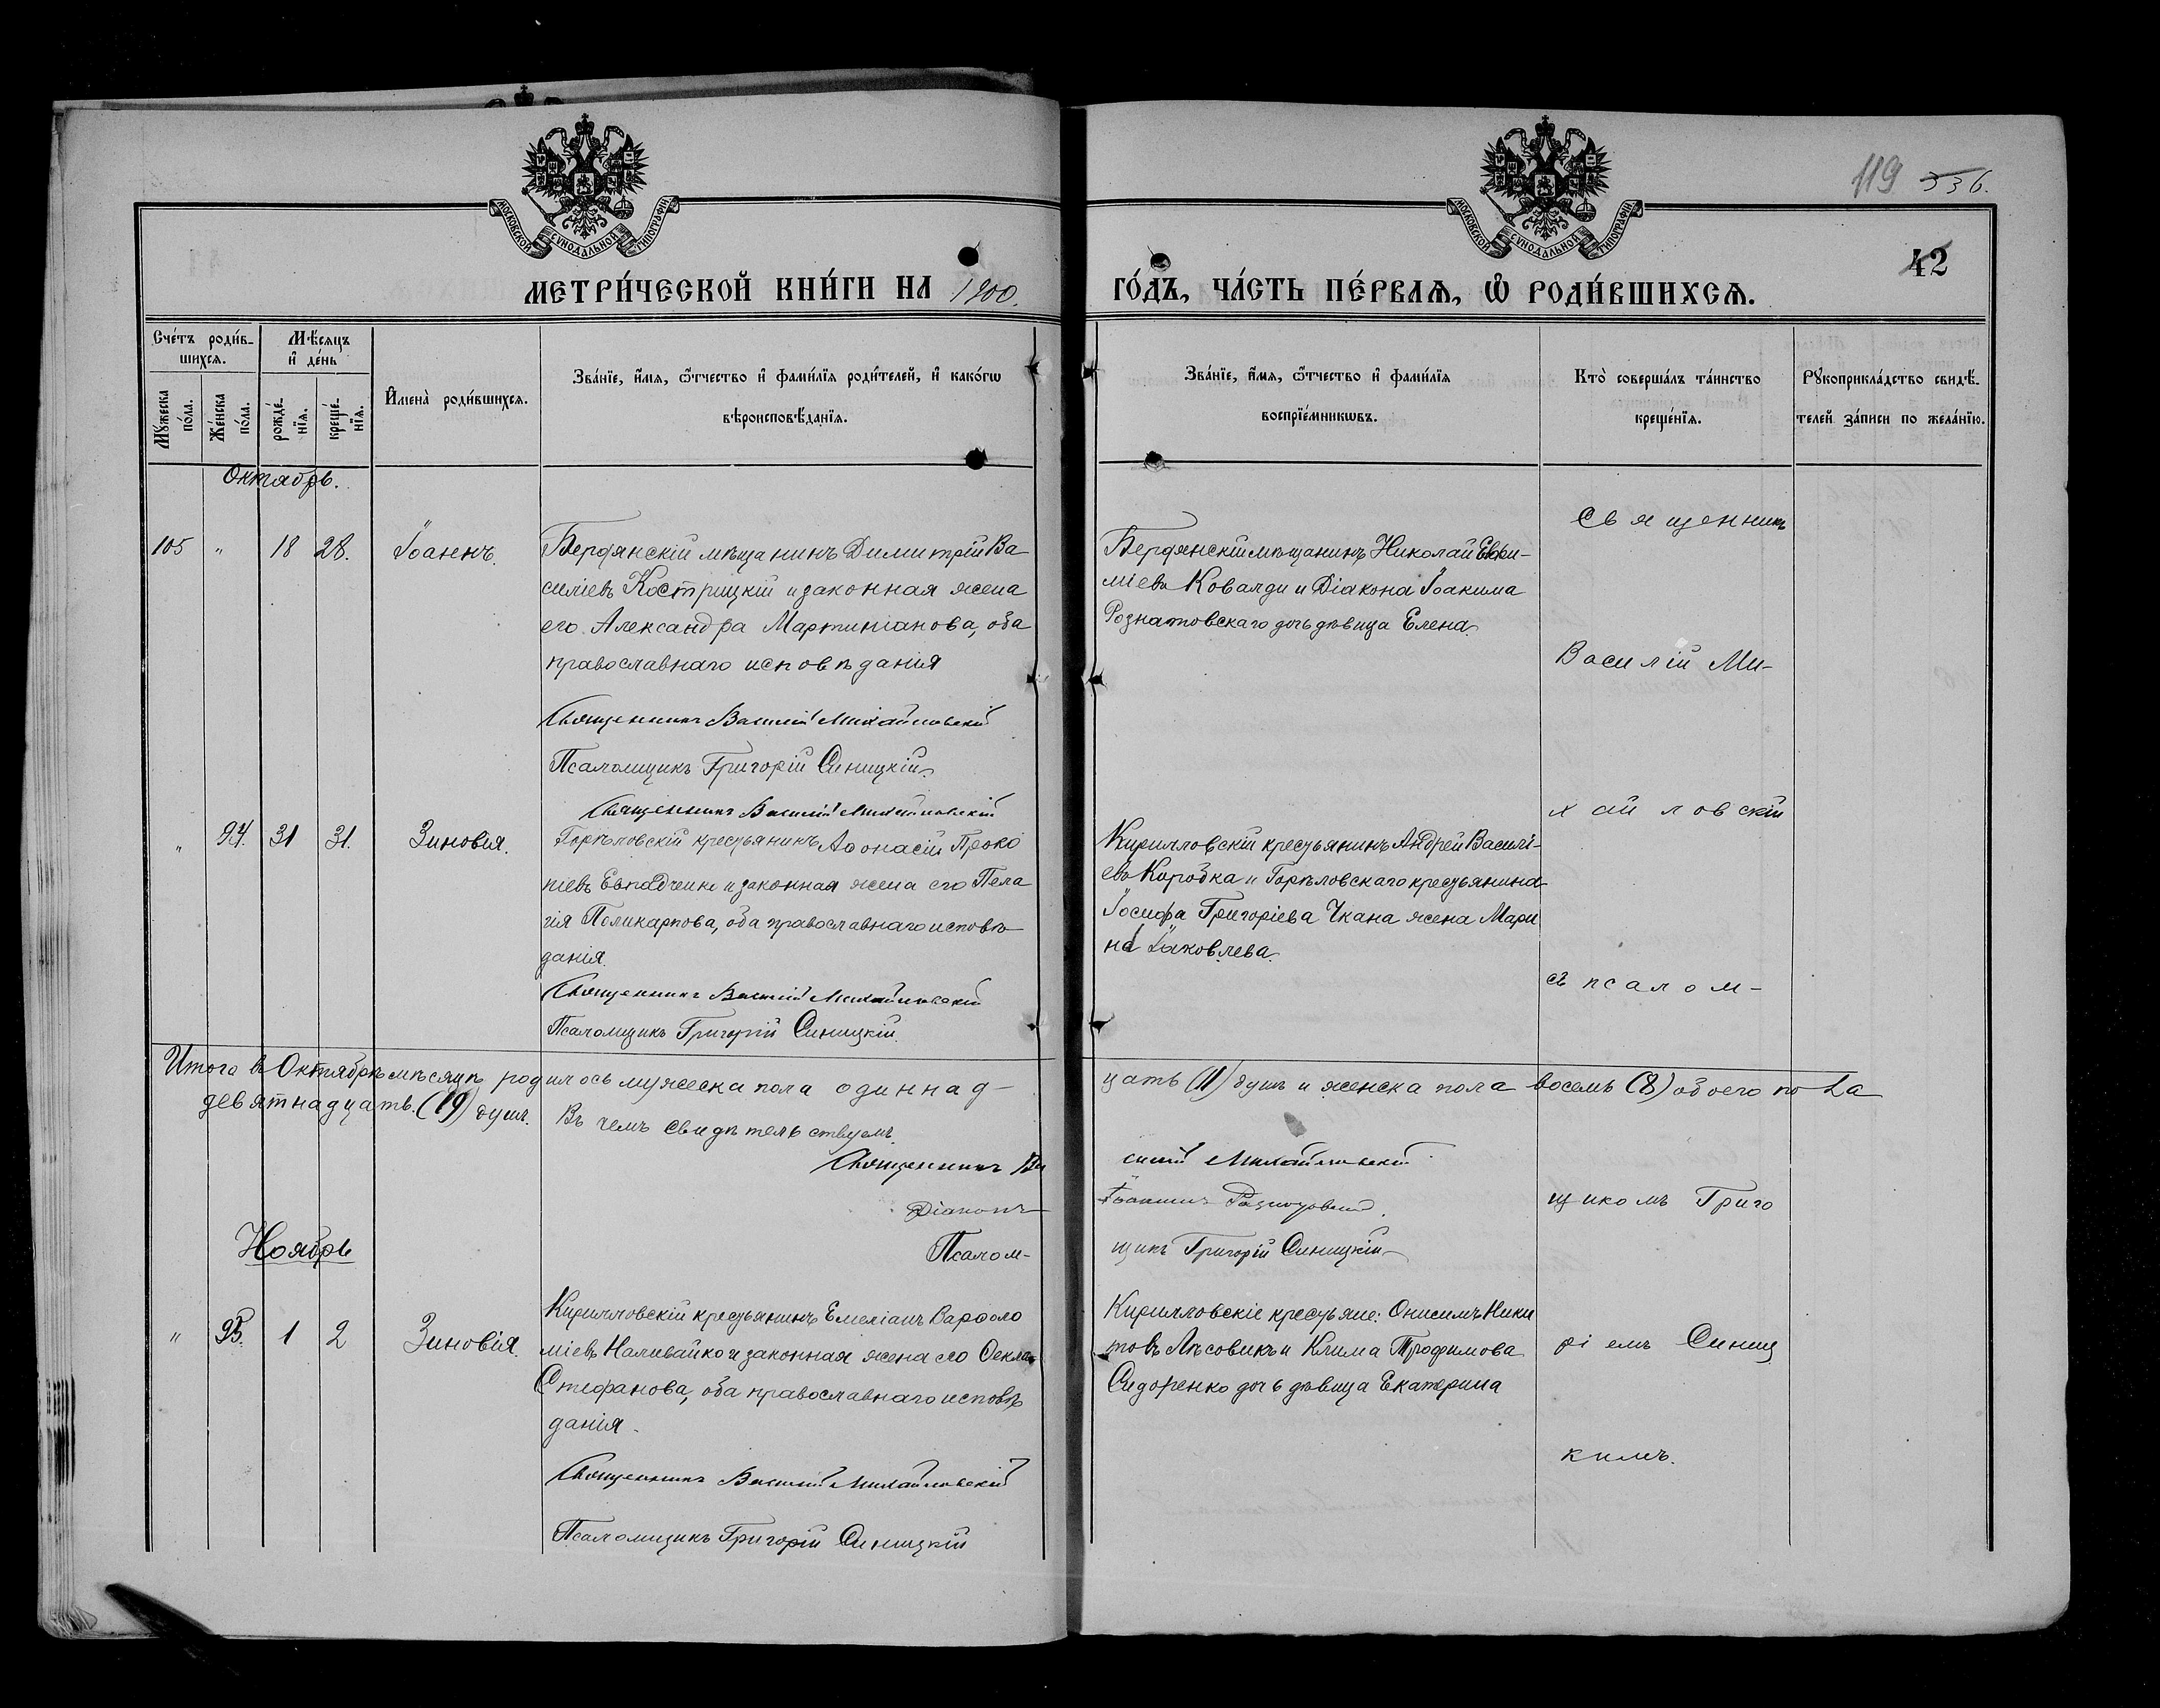 119 336.
МОСКОВСКОЙ СѴНОДАЛЬНОЙ ТИПОГРАФІИ
МОСКОВСКОЙ СѴНОДАЛЬНОЙ ТИПОГРАФІИ
42
МЕТРИ́ЧЕСКОЙ КНИ́ГИ НА 1900. ГО́ДЪ, ЧА́СТЬ ПЕ́РВАѦ, Ѡ҆ РОДИ́ВШИХСѦ.
Сче́тъ роди́в-
шихсѧ.
Мѣ́сѧцъ
и҆ де́нь
Мꙋ́жеска
по́ла.
Же́нска
по́ла.
рожде́-
нїѧ.
креще́-
нїѧ.
И҆мена̀ роди́вшихсѧ.
Зва́нїе, и҆́мѧ, ѻ҆́тчество и҆ фами́лїѧ роди́телей, и҆ како́гѡ
вѣроисповѣ́данїѧ.
Зва́нїе, и҆́мѧ, ѻ҆́тчество и҆ фами́лїѧ
воспрїе́мникѡвъ.
Кто̀ соверша́лъ та́инство
креще́нїѧ.
Рꙋкоприкла́дство свидѣ́-
телей за́писи по жела́нїю.
Октябрь.
105 " 18 28. Іоаннъ.
Бердянскій мѣщанинъ Димитрій Ва-
силіевъ Кострицкій и законная жена
его Александра Мартиніанова, оба
православнаго исповѣданія
Священникъ Василій Михайловскій
Псаломщикъ Григорій Синицкій
Бердянскій мѣщанинъ Николай Евфи-
міевъ Ковалди и Діакона Іоакима
Розматовскаго дочь дѣвица Елена.
Священникъ
Василій Ми-
хайловскій
Священникъ Василій Михайловскій
" 94. 31 31. Зиновія.
Горѣловскій крестьянинъ Аѳонасій Проко
піевъ и законная жена его Пела
гія Поликарпова, оба православнаго исповѣ-
данія.
Священникъ Василій Михайловскій
Псаломщикъ Григорій Синицкій.
Кирилловскій крестьянинъ Андрей Василі-
евъ Коробка и Горѣловскаго крестьянина
Іосифа Григоріева Чкана жена Мари
на Іаковлева.
съ псалом-
Итого въ Октябрѣ мѣсяцѣ родилось мужеска пола одиннад-
цать (11) душъ и женска пола восемь (8) обоего пола
девятнадцать (19) душъ.
Въ чемъ свидѣтельствуемъ.
Священникъ Ва
силій Михайловскій
Діаконъ
Іоакимъ
Псалом-
щикъ Григорій Синицкій
щикомъ Григо
Ноябрь
" 95. 1 2 Зиновія.
Кирилловскій крестьянинъ Емеліанъ Варѳоло
міевъ Наливайко и законная жена его Ѳекла
Стефанова, оба православнаго исповѣ
данія.
Священникъ Василій Михайловскій
Псаломщикъ Григорій Синицкій
Кирилловскіе крестьяне: Онисимъ Ники
товъ Лѣсовикъ и Клима Трофимова
Сидоренко дочь дѣвица Екатерина
ріемъ Синиц
кимъ.